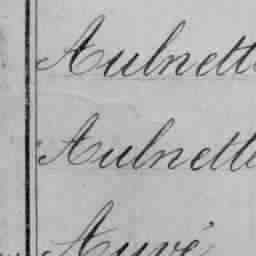 Aulnette
Aulnette
Auvé